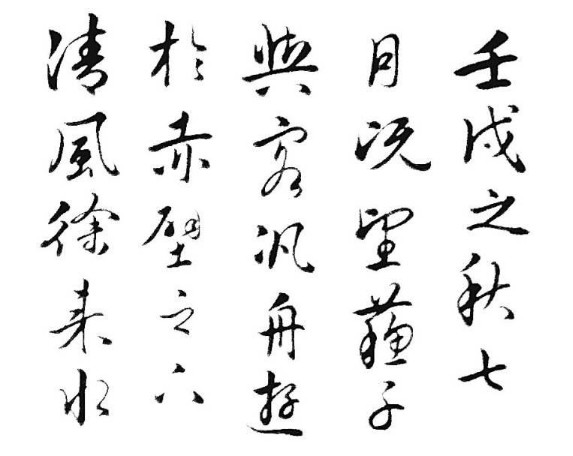 壬戌之秋七
月既望蘇子
與客汎舟遊
於赤壁之下
清風徐来水